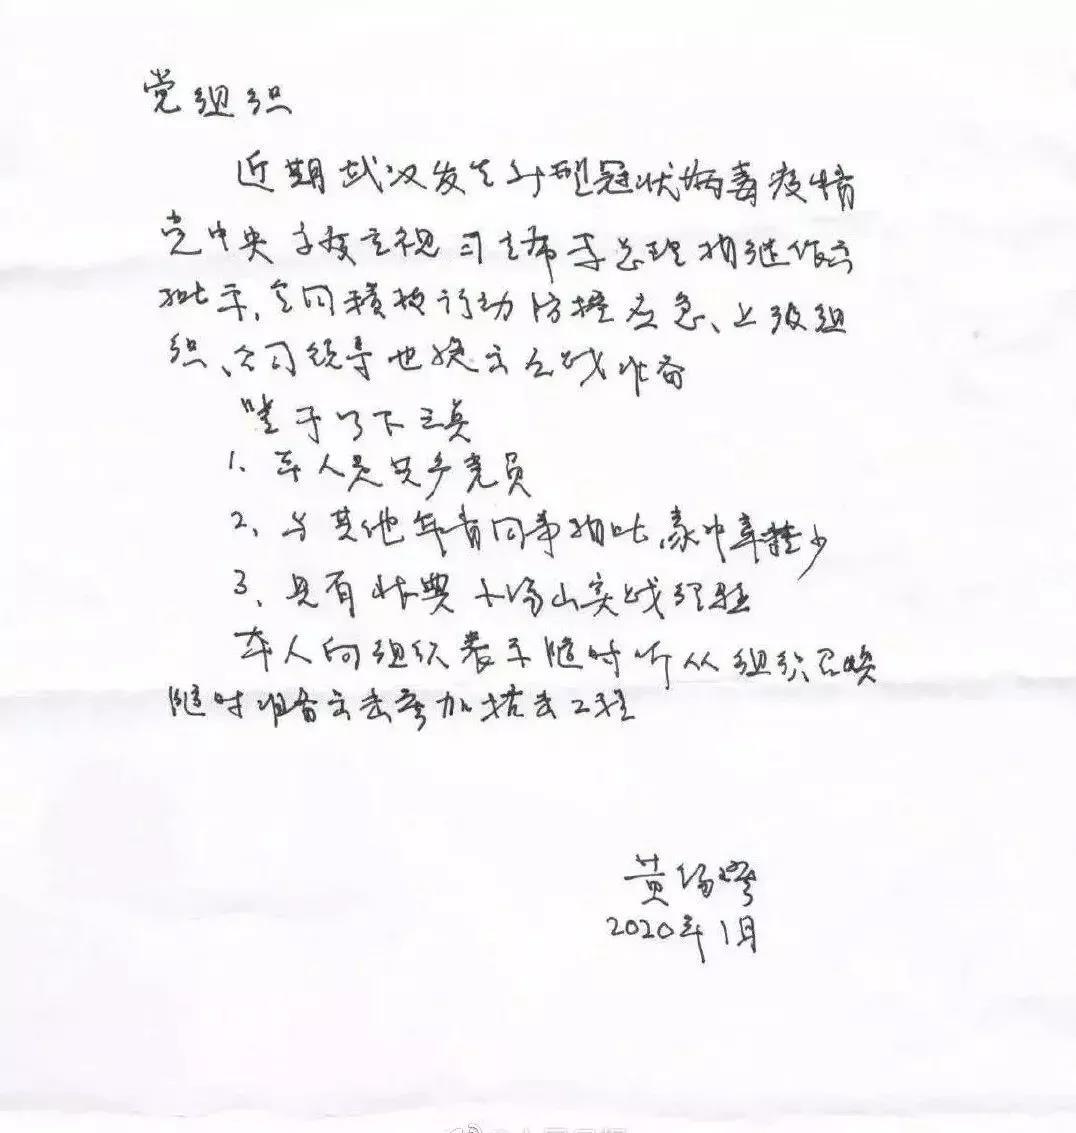 党组织
近期武汉发生新型冠状病毒疫情
党中央高度重视 习主席李总理相继作出
批示、全国积极行动防控应急、上级组
织、公司领导也提出应战准备
鉴于以下三点
1、本人是共产党员
2、与其他年青同事相比，家中牵挂少
3、具有非典小汤山实战经验
本人向组织表示随时听从组织召唤
随时准备出击参加抗击工程
黄锡璆
2020年1月